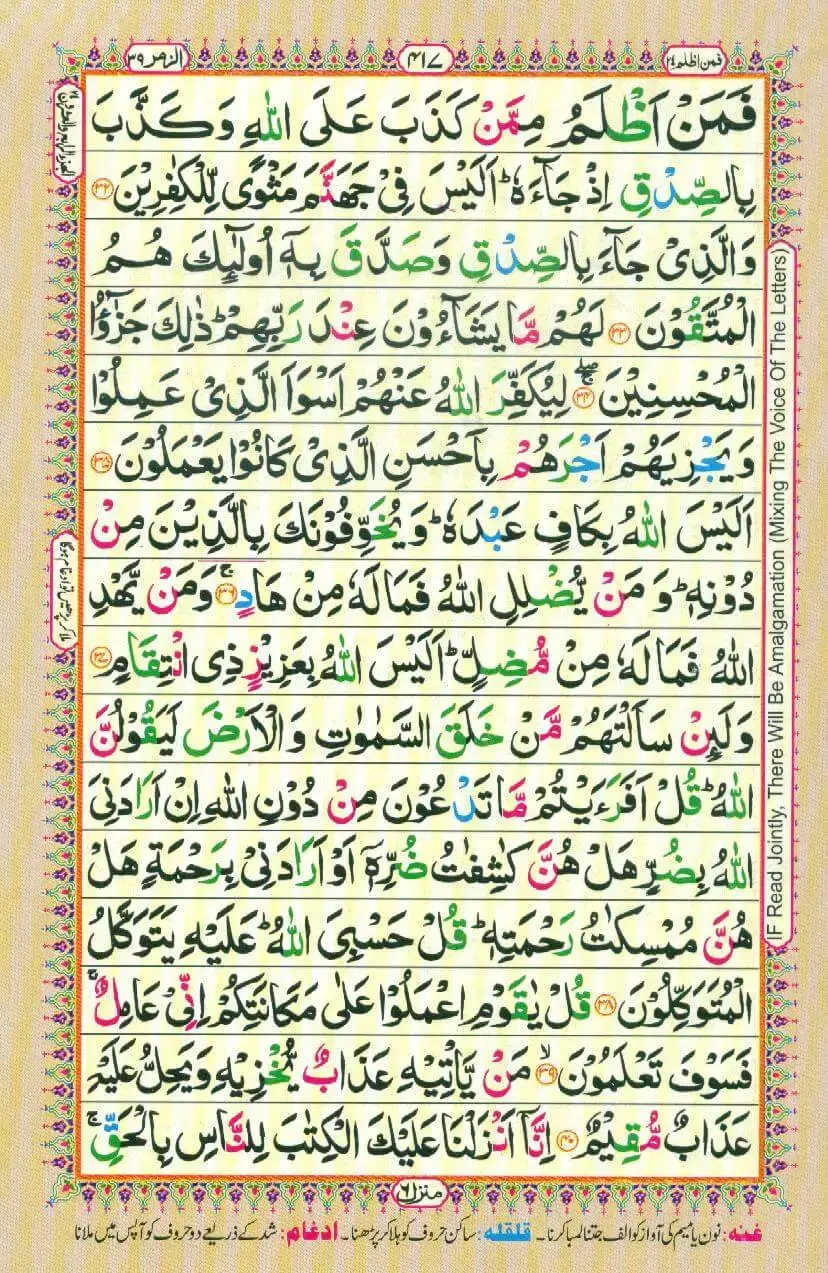 فمن اظلم ٢٤
٤١٧
الزمر ٣٩
فَمَنْ اَظْلَمُ مِمَّنْ كَذَبَ عَلَى اللّٰهِ وَكَذَّبَ
بِالصِّدْقِ اِذْ جَآءَهٗ ؕ اَلَيْسَ فِيْ جَهَنَّمَ مَثْوًى لِّلْكٰفِرِيْنَ ٣٢
وَالَّذِيْ جَآءَ بِالصِّدْقِ وَصَدَّقَ بِهٖۤ اُولٰٓئِكَ هُمُ
الْمُتَّقُوْنَ ٣٣ لَهُمْ مَّا يَشَآءُوْنَ عِنْدَ رَبِّهِمْ ؕ ذٰلِكَ جَزٰٓؤُا
الْمُحْسِنِيْنَ ٣٤ لِيُكَفِّرَ اللّٰهُ عَنْهُمْ اَسْوَاَ الَّذِيْ عَمِلُوْا
وَيَجْزِيَهُمْ اَجْرَهُمْ بِاَحْسَنِ الَّذِيْ كَانُوْا يَعْمَلُوْنَ ٣٥
اَلَيْسَ اللّٰهُ بِكَافٍ عَبْدَهٗ ؕ وَيُخَوِّفُوْنَكَ بِالَّذِيْنَ مِنْ
دُوْنِهٖ ؕ وَمَنْ يُّضْلِلِ اللّٰهُ فَمَا لَهٗ مِنْ هَادٍ ۚ ٣٦ وَمَنْ يَّهْدِ
اللّٰهُ فَمَا لَهٗ مِنْ مُّضِلٍّ ؕ اَلَيْسَ اللّٰهُ بِعَزِيْزٍ ذِى انْتِقَامٍ ٣٧
وَلَئِنْ سَاَلْتَهُمْ مَّنْ خَلَقَ السَّمٰوٰتِ وَالْاَرْضَ لَيَقُوْلُنَّ
اللّٰهُ ؕ قُلْ اَفَرَءَيْتُمْ مَّا تَدْعُوْنَ مِنْ دُوْنِ اللّٰهِ اِنْ اَرَادَنِيَ
اللّٰهُ بِضُرٍّ هَلْ هُنَّ كٰشِفٰتُ ضُرِّهٖۤ اَوْ اَرَادَنِيْ بِرَحْمَةٍ هَلْ
هُنَّ مُمْسِكٰتُ رَحْمَتِهٖ ؕ قُلْ حَسْبِيَ اللّٰهُ ؕ عَلَيْهِ يَتَوَكَّلُ
الْمُتَوَكِّلُوْنَ ٣٨ قُلْ يٰقَوْمِ اعْمَلُوْا عَلٰى مَكَانَتِكُمْ اِنِّيْ عَامِلٌ ۚ
فَسَوْفَ تَعْلَمُوْنَ ۙ ٣٩ مَنْ يَّاْتِيْهِ عَذَابٌ يُّخْزِيْهِ وَيَحِلُّ عَلَيْهِ
عَذَابٌ مُّقِيْمٌ ٤٠ اِنَّاۤ اَنْزَلْنَا عَلَيْكَ الْكِتٰبَ لِلنَّاسِ بِالْحَقِّ ۚ
IF Read Jointly, There Will Be Amalgamation (Mixing The Voice Of The Letters)
منزل ٦
غنہ: نون یا میم کی آواز کو الف جتنا لمبا کرنا۔ قلقلہ: ساکن حروف کو ہلا کر پڑھنا۔ ادغام: شد کے ذریعے دو حروف کو آپس میں ملانا